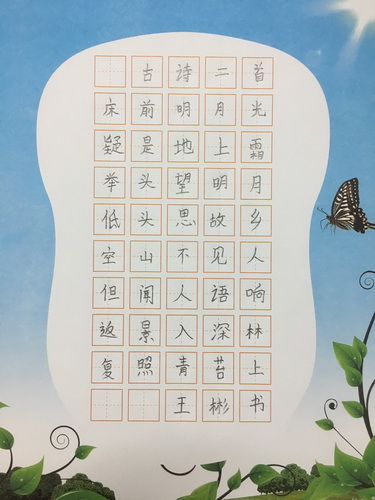 古诗二首
床前明月光
疑是地上霜
举头望明月
低头思故乡
空山不见人
但闻人语响
返景入深林
复照青苔上
王彬书